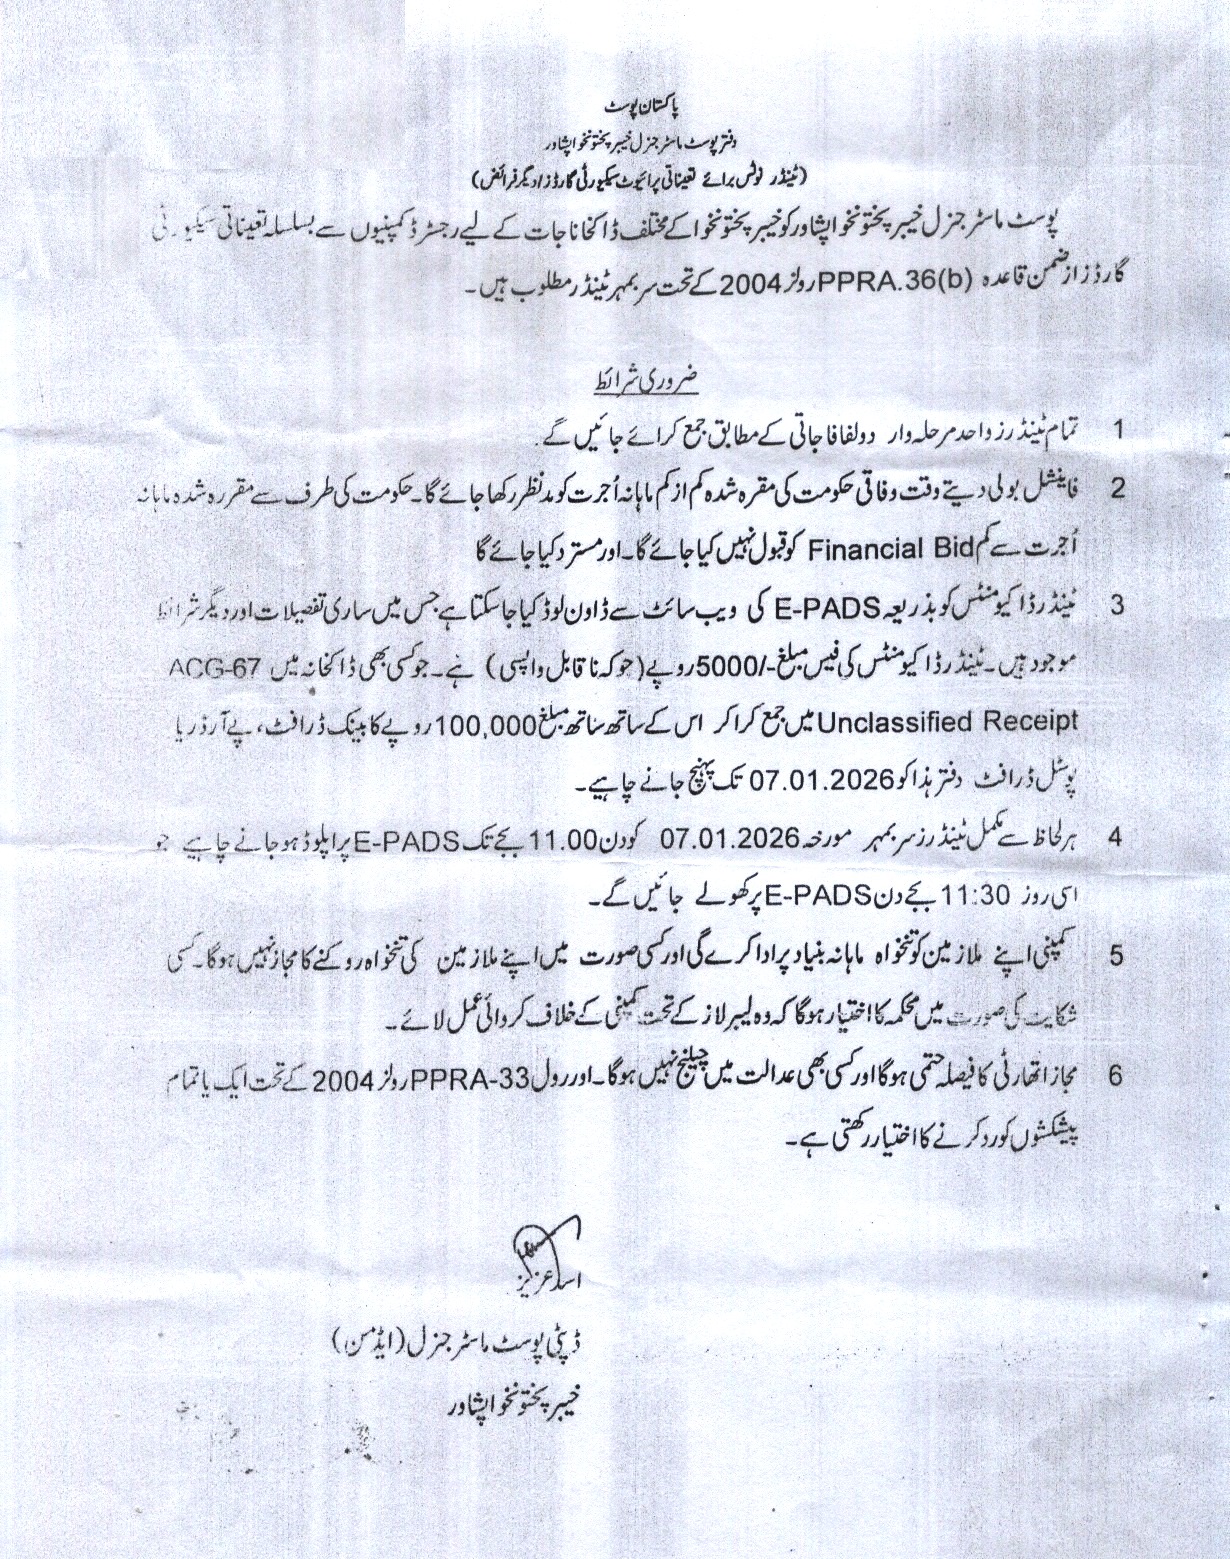 پاکستان پوسٹ
دفتر پوسٹ ماسٹر جنرل خیبر پختونخوا پشاور
(ٹینڈر نوٹس برائے تعیناتی پرائیوٹ سیکیورٹی گارڈز / دیگر فرائض)
پوسٹ ماسٹر جنرل خیبر پختونخوا پشاور کو خیبر پختونخوا کے مختلف ڈاکخانا جات کے لیے رجسٹرڈ کمپنیوں سے بسلسلہ تعیناتی سیکیورٹی
گارڈز از ضمن قاعدہ PPRA.36(b) رولز 2004 کے تحت سر بمہر ٹینڈر مطلوب ہیں۔
ضروری شرائط
1 تمام ٹینڈرز واحد مرحلہ وار دو لفافا جاتی کے مطابق جمع کرائے جائیں گے۔
2 فاینشل بولی دیتے وقت وفاقی حکومت کی مقرہ شدہ کم از کم ماہانہ اُجرت کو مد نظر رکھا جائے گا۔ حکومت کی طرف سے مقررہ شدہ ماہانہ
اُجرت سے کم Financial Bid کو قبول نہیں کیا جائے گا۔ اور مسترد کیا جائے گا
3 ٹینڈر ڈاکیومنٹس کو بذریعہ E-PADS کی ویب سائٹ سے ڈاون لوڈ کیا جا سکتا ہے جس میں ساری تفصیلات اور دیگر شرائط
موجود ہیں۔ ٹینڈر ڈاکیومنٹس کی فیس مبلغ -/5000 روپے (جو کہ نا قابل واپسی) ہے۔ جو کسی بھی ڈاکخانہ میں ACG-67
Unclassified Receipt میں جمع کرا کر اس کے ساتھ ساتھ مبلغ 100,000 روپے کا بینک ڈرافٹ، پے آرڈر یا
پوسٹل ڈرافٹ دفتر ہذا کو 07.01.2026 تک پہنچ جانے چاہیے۔
4 ہر لحاظ سے مکمل ٹینڈرز سر بمہر مورخہ 07.01.2026 کو دن 11.00 بجے تک E-PADS پر اپلوڈ ہو جانے چاہیے جو
اسی روز 11:30 بجے دن E-PADS پر کھولے جائیں گے۔
5 کمپنی اپنے ملازمین کو تنخواہ ماہانہ بنیاد پر ادا کرے گی اور کسی صورت میں اپنے ملازمین کی تنخواہ روکنے کا مجاز نہیں ہوگا۔ کسی
شکایت کی صورت میں محکمہ کا اختیار ہوگا کہ وہ لیبر لاز کے تحت کمپنی کے خلاف کروائی عمل لائے۔
6 مجاز اتھارٹی کا فیصلہ حتمی ہوگا اور کسی بھی عدالت میں چیلنج نہیں ہوگا۔ اور رول PPRA-33 رولز 2004 کے تحت ایک یا تمام
پیشکشوں کو رد کرنے کا اختیار رکھتی ہے۔
اسد عزیز
ڈپٹی پوسٹ ماسٹر جنرل (ایڈمن)
خیبر پختونخوا پشاور